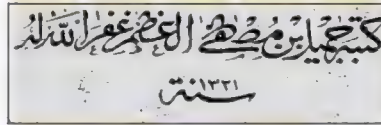 كتبه جميل بن مصطفى العظم غفر الله له
سنة ١٣٢١